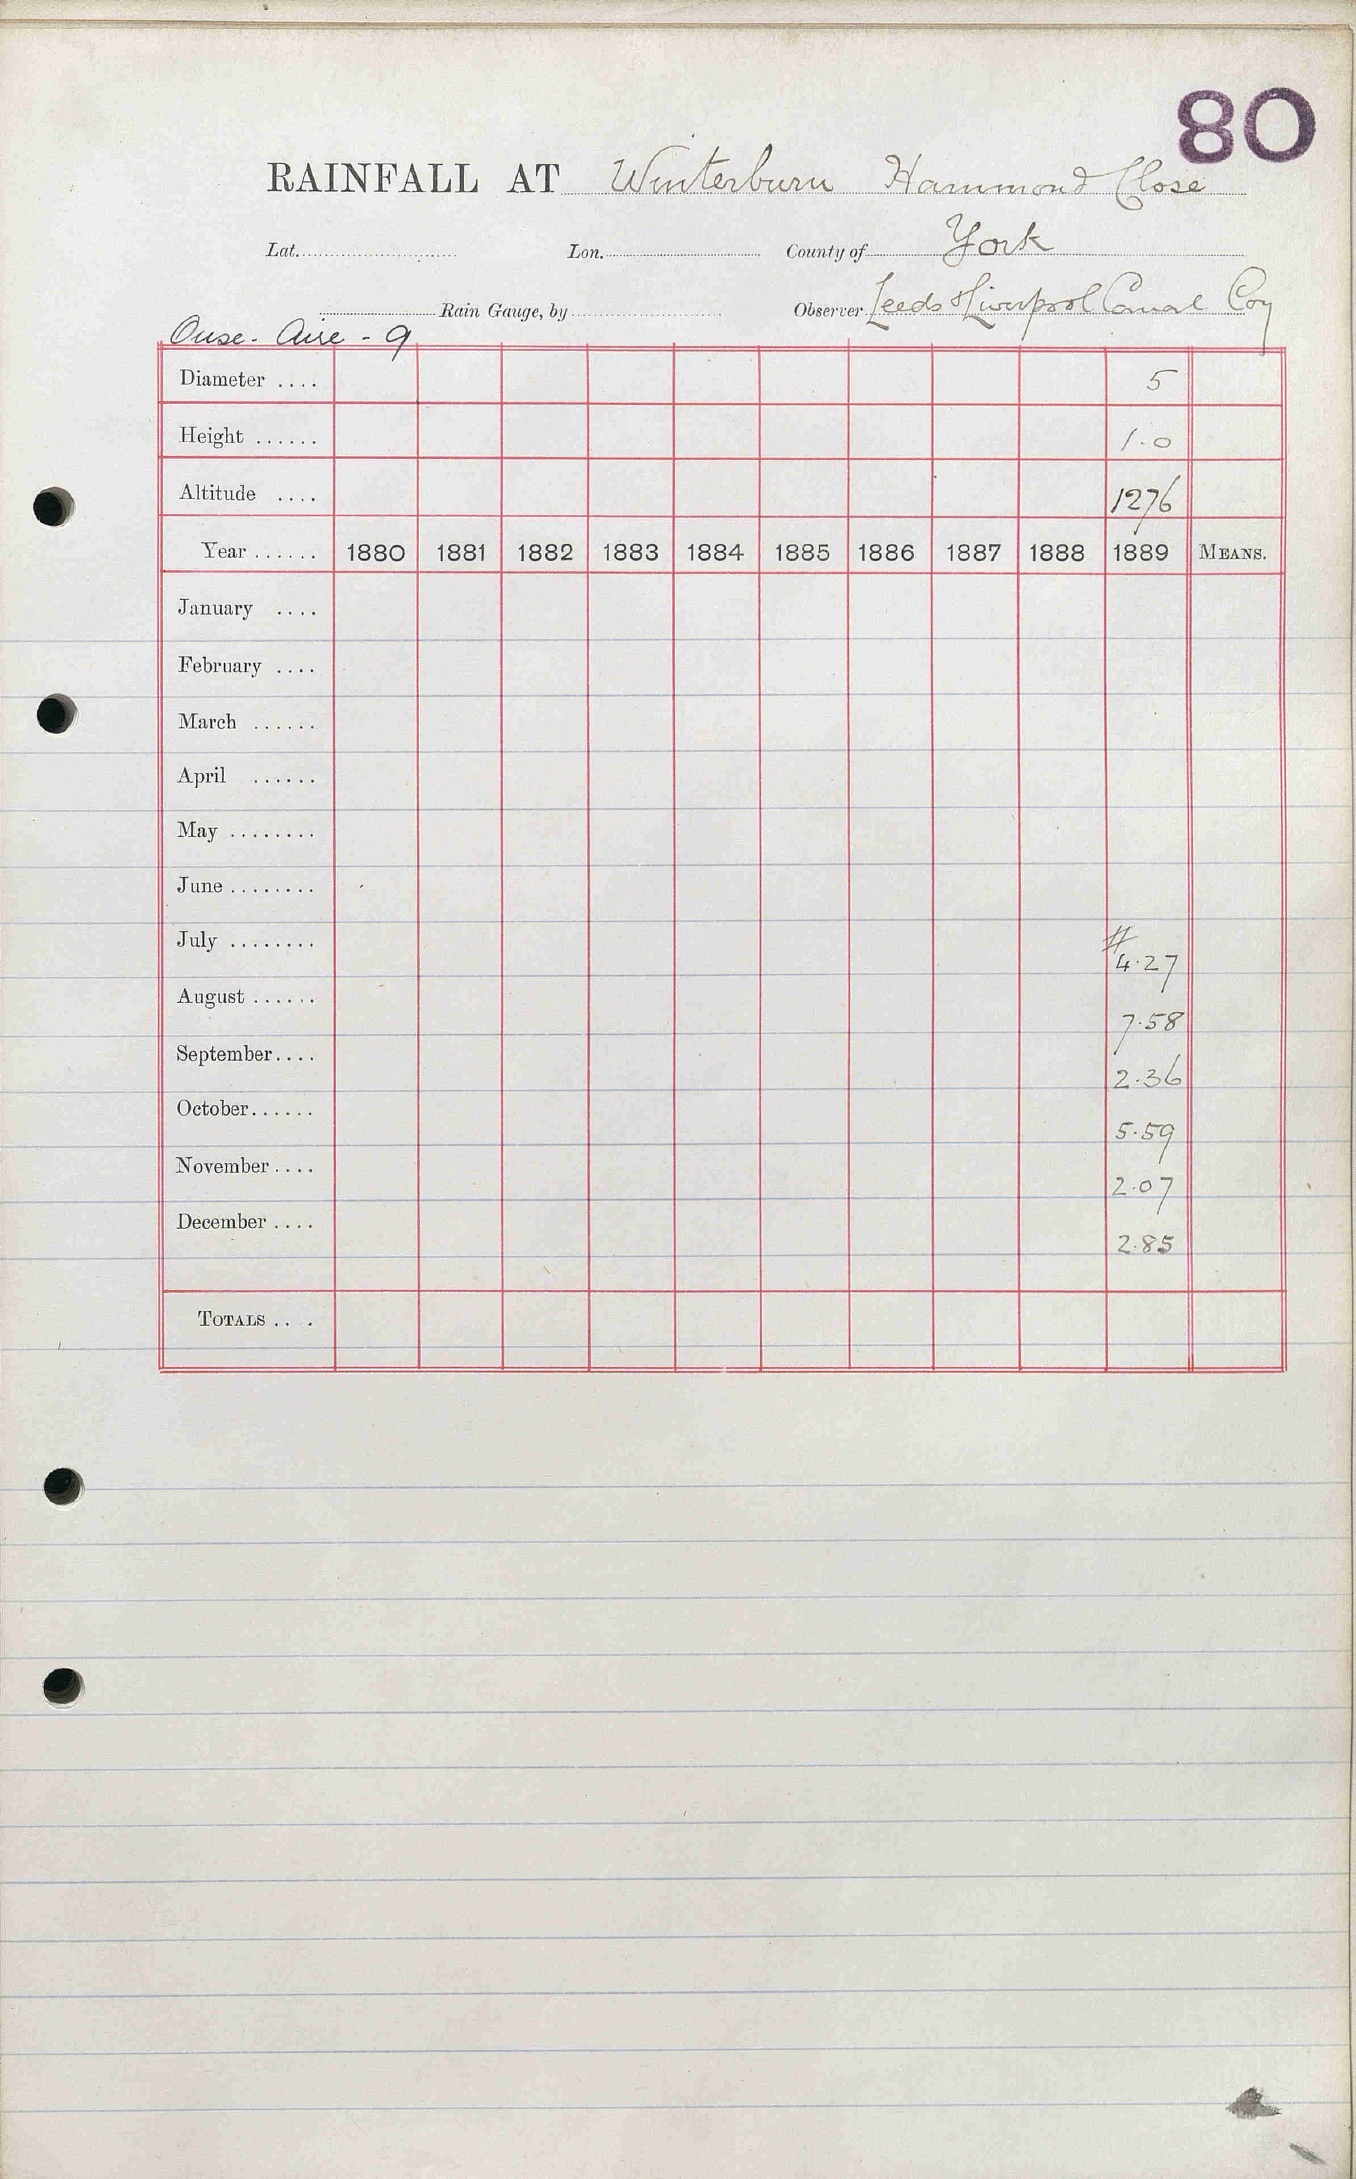 80
RAINFALL AT Winterburn Hammond Close
Lat. Lon. County of York
Rain Gauge, by Observer Leeds & Liverpool Canal Coy
Ouse - Aire - 9
Diameter .... 5
Height ...... 1.0
Altitude .... 1276
Year ...... 1880 1881 1882 1883 1884 1885 1886 1887 1888 1889 MEANS.
January ....
February ....
March ......
April ......
May ........
June ........
July ........ # 4.27
August ...... 7.58
September .... 2.36
October ...... 5.59
November .... 2.07
December .... 2.85
TOTALS .. .